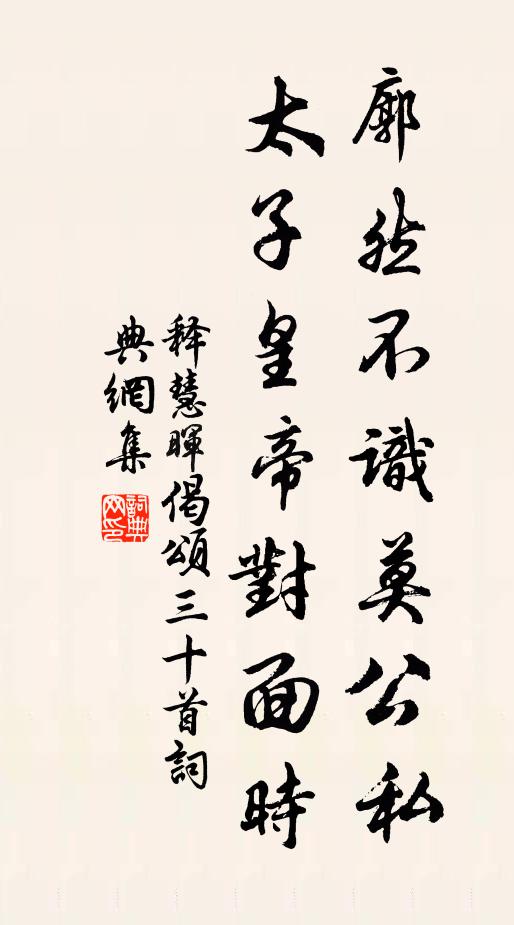 廓然不識莫公私
太子皇帝對面時
释慧暉偈頌三十首詞
典網集
詞典网印